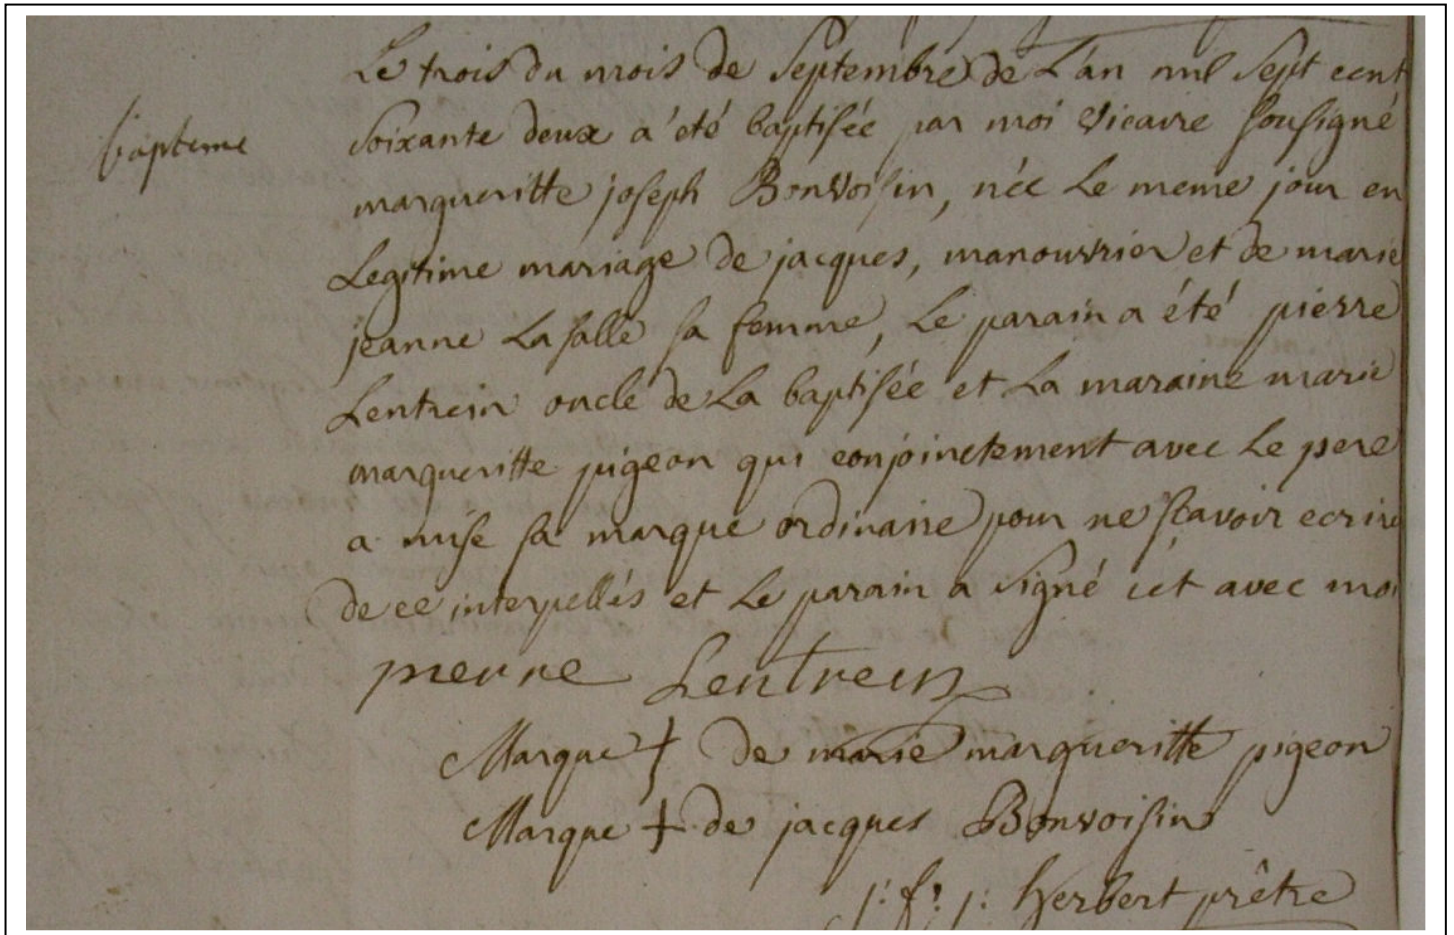 Le trois du mois de Septembre de L'an mil Sept cent
bapteme
Soixante deux a été baptisée par moi vicaire Sousigné
margueritte joseph Bonvoisin, née Le meme jour en
Legitime mariage de jacques, manouvrier et de marie
jeanne La salle sa femme, Le parain a été pierre
Lentrein oncle de La baptisée et La maraine marie
margueritte pigeon qui conjoinctement avec Le pere
a mise sa marque ordinaire pour ne sçavoir ecrire
de ce interpellés et Le parain a signé avec moi
pierre Lentrein
Marque † de marie margueritte pigeon
Marque † de jacques Bonvoisin
j: f: j: Herbert prêtre